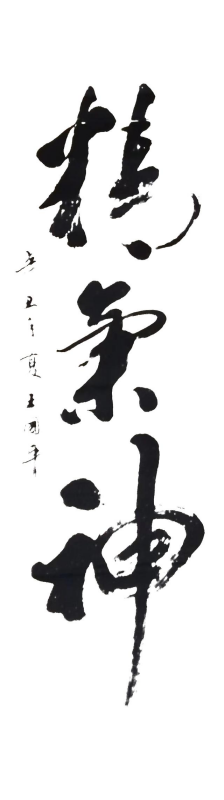 精氣神
辛丑年夏王國